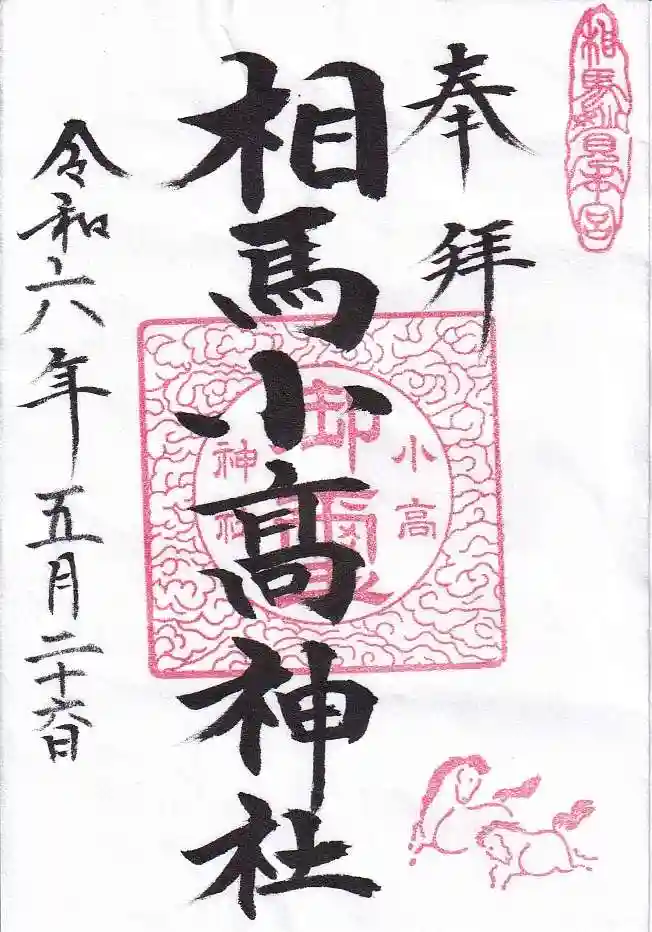 相馬妙見本宮
奉拝
相馬小髙神社
小高
御璽
神社
令和六年五月二十六日